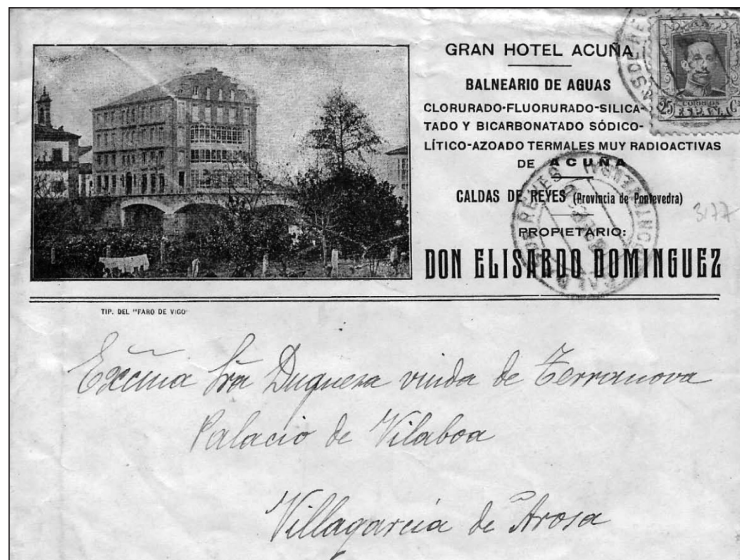 GRAN HOTEL ACUÑA
BALNEARIO DE AGUAS
CLORURADO-FLUORURADO-SILICA-
TADO Y BICARBONATADO SÓDICO-
LÍTICO-AZOADO TERMALES MUY RADIOACTIVAS
DE ACUÑA
CALDAS DE REYES (Provincia de Pontevedra)
PROPIETARIO:
DON ELISARDO DOMINGUEZ
3177
TIP. DEL "FARO DE VIGO"
Excma Sra Duquesa viuda de Terranova
Palacio de Vilaboa
Villagarcia de Arosa
CORREOS
ESPAÑA
25